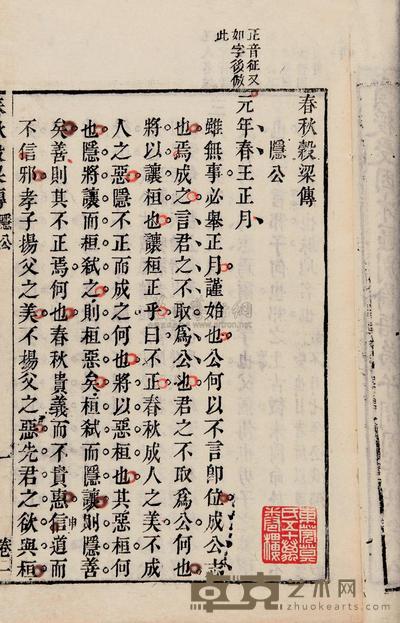 正音征又
如字後倣
此
春秋穀梁傳
隱公
元年春王正月
雖無事必舉正月謹始也公何以不言即位成公志
也焉成之言君之不取為公也君之不取為公何也
將以讓桓也讓桓正乎曰不正春秋成人之美不成
人之惡隱不正而成之何也將以惡桓也其惡桓何
也隱將讓而桓弒之則桓惡矣桓弒而隱讓則隱善
矣善則其不正焉何也春秋貴義而不貴惠信道而
不信邪孝子揚父之美不揚父之惡先君之欲與桓
申
春秋穀梁傳 隱公 卷一
東莞莫
氏五十萬
卷樓
卓克艺术网
zhuokearts.com